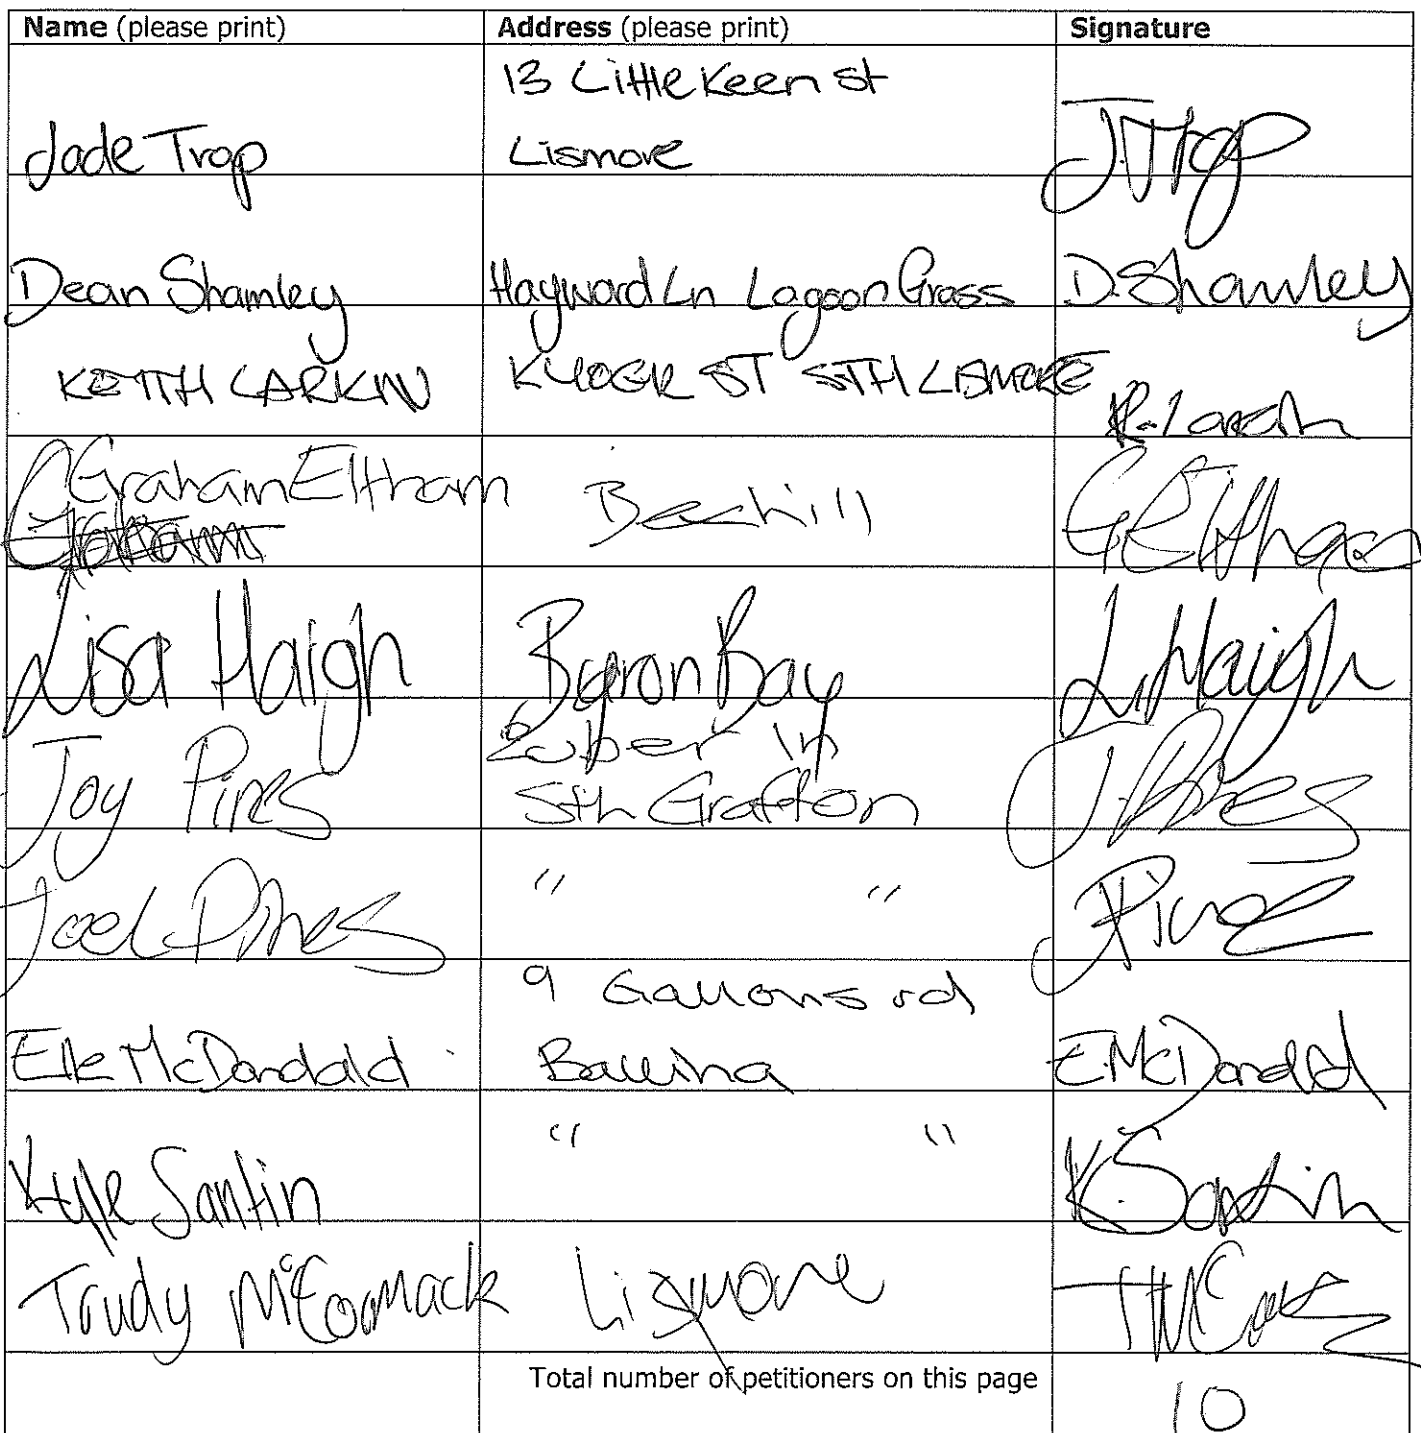 Name (please print) Address (please print) Signature
13 Little Keen st
Jade Trop Lismore J.Trop
Dean Shamley Hayward Ln Lagoon Grass D.Shamley
KEITH LARKIN ST STH LISMORE K.Larkin
Graham Eltham Bexhill G Eltham
Graham
Lisa Haigh Byron Bay L.Haigh
Joy Pines ln J.Pines
Sth Grafton
Joel Pines " " J Pines
9 Gallons rd
McDondald Ballina E.McDonald
Kyle Santin " " K.Santin
Trudy McCormack Lismore
Total number of petitioners on this page
10